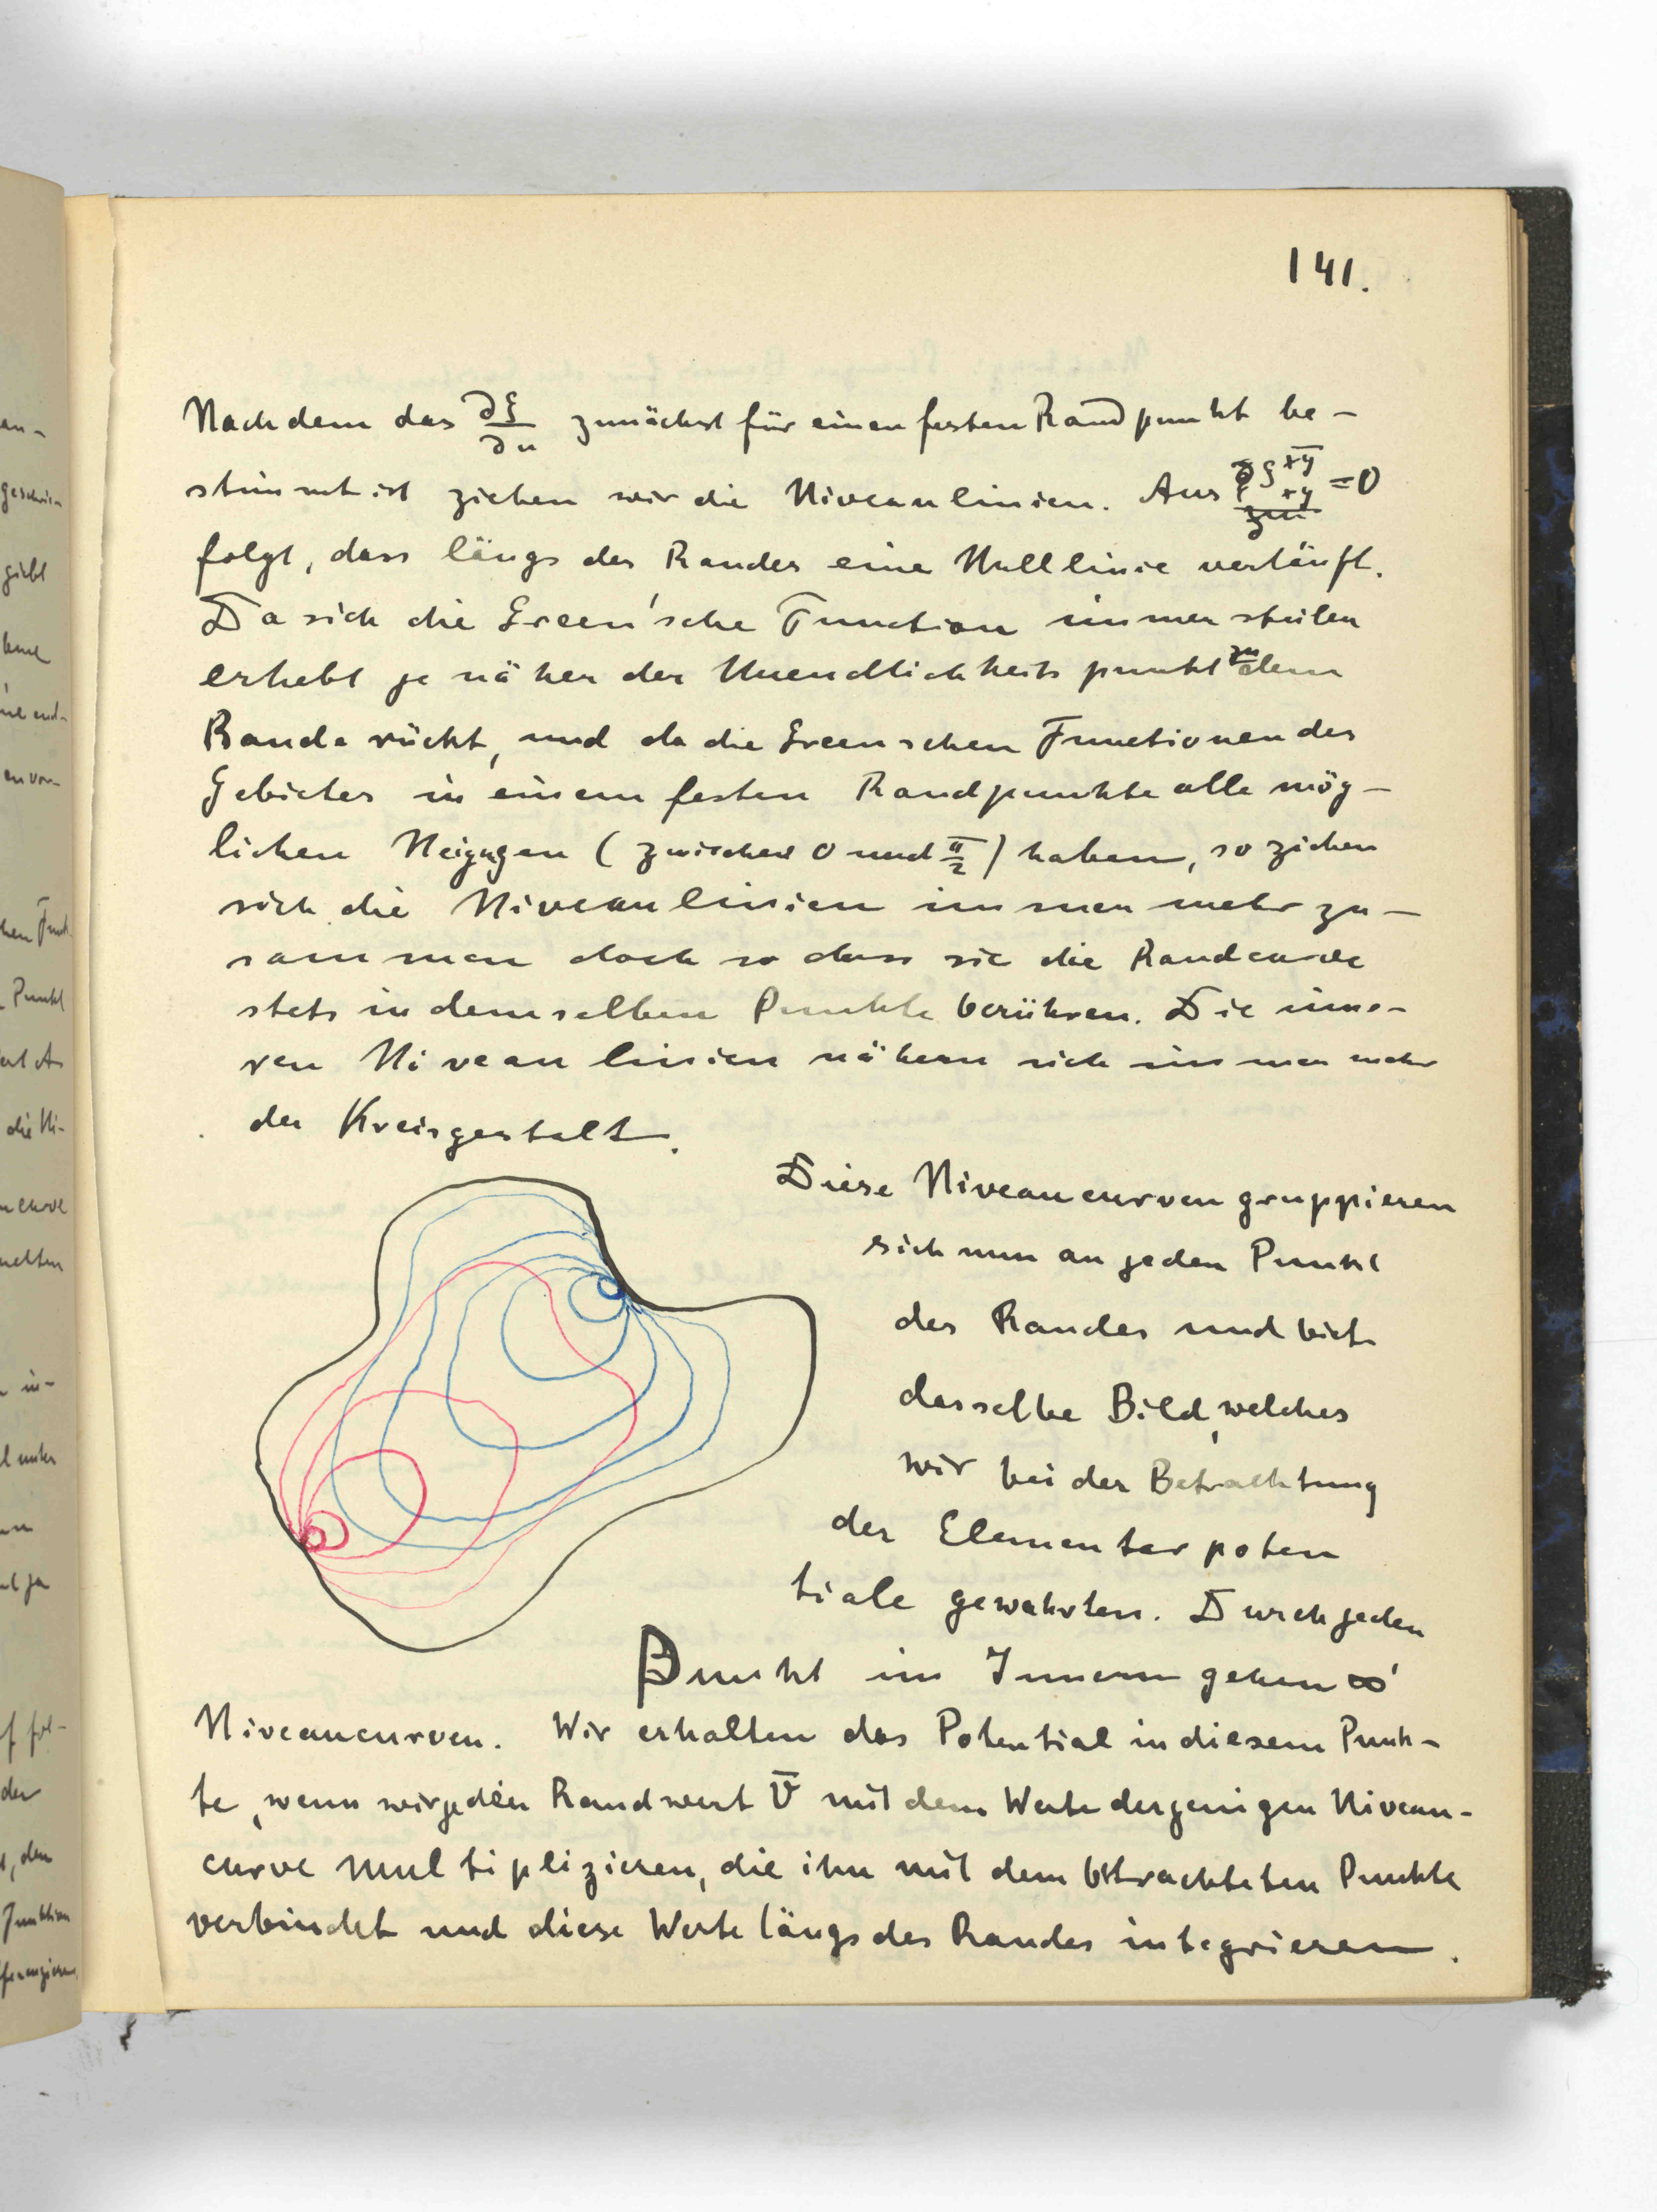 141.
Nachdem das ∂G/∂n zunächst für einen festen Randpunkt be-
stimmt ist ziehen wir die Niveaulinien. Aus G xy xy = 0
folgt, dass längs des Randes eine Nulllinie verläuft.
Da sich die Green'sche Function immer steiler
erhebt je näher der Unendlichkeitspunkt zu dem
Rande rückt, und da die Greenschen Functionen des
Gebietes in einem festen Randpunkte alle mög-
lichen Neigugen (zwischen 0 und π/2) haben, so ziehen
sich die Niveaulinien immer mehr zu-
sammen doch so dass sie die Randcurve
stets in demselben Punkte berühren. Die inne-
ren Niveaulinien nähern sich immer mehr
der Kreisgestalt.
Diese Niveaucurven gruppieren
sich nun an jeden Punkt
des Randes und biet
dasselbe Bild, welches
wir bei der Betrachtung
der Elementarpoten
tiale gewahrten. Durch jeden
Punkt im Innern gehen ∞'
Niveaucurven. Wir erhalten das Potential in diesem Punk-
te, wenn wir jeden Randwert V̄ mit dem Werte derjenigen Niveau-
curve multiplizieren, die ihn mit dem betrachteten Punkte
verbindet und diese Werte längs des Randes integrieren.
an-
geschrie-
giebt
en vor-
hen Funk
Punkt
die Ni-
curve
in-
unter
f fol-
der
, den
Funktion